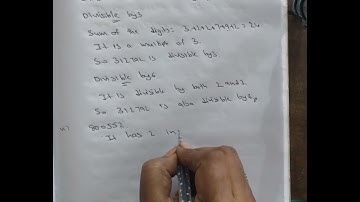 Divisible by 3
Sum of the digits = 3+1+2+7+9+2 = 24.
It is a multiple of 3.
So 312792 is divisible by 3.
Divisible by 6
It is divisible by both 2 and 3.
So 312792 is also divisible by 6,
800552
It has 2 in